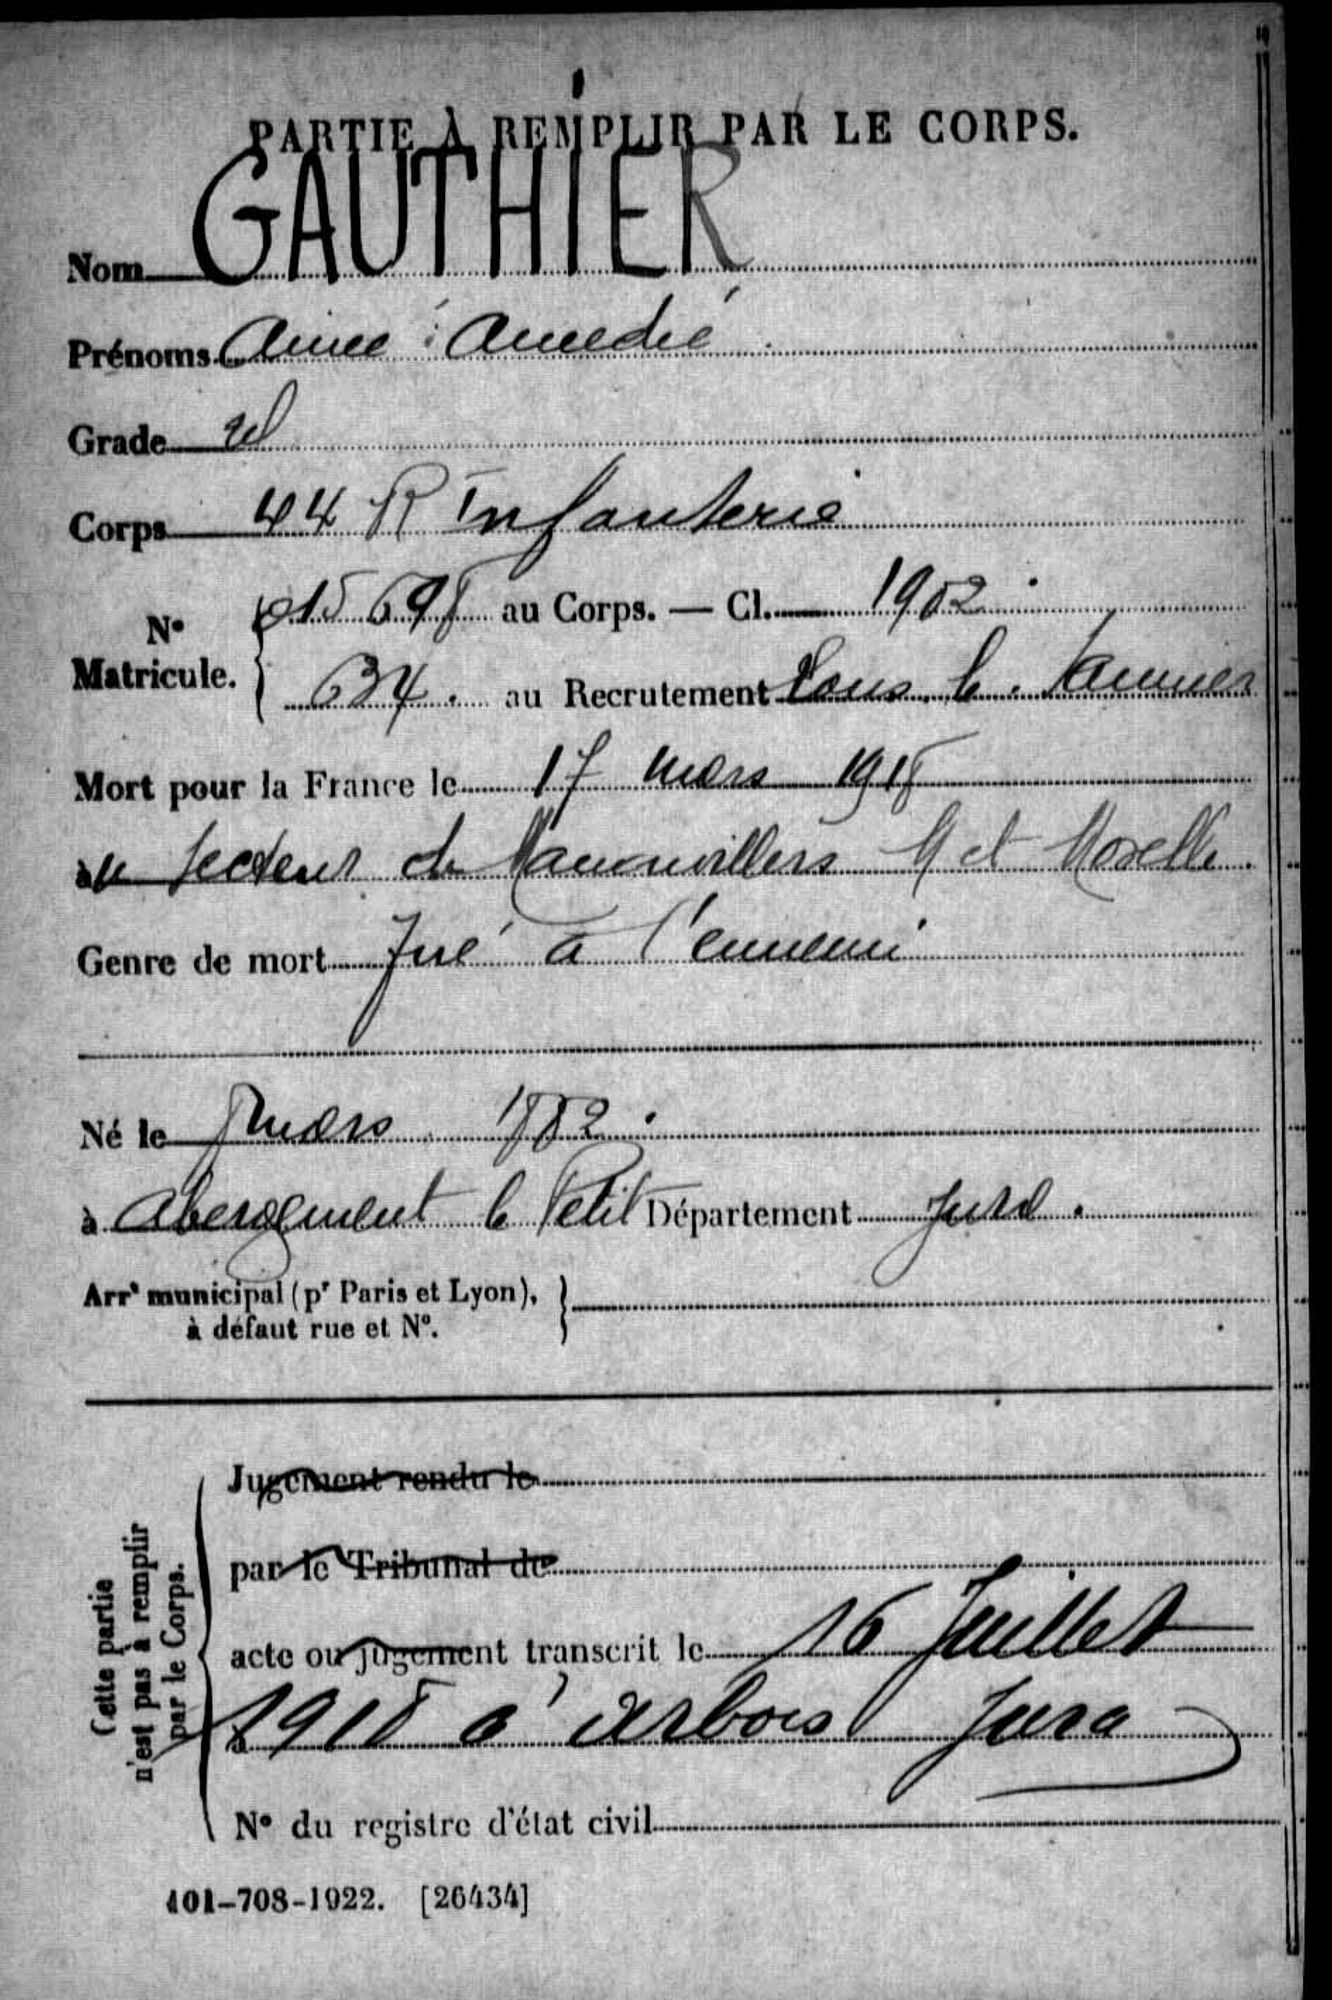 PARTIE À REMPLIR PAR LE CORPS.
Nom GAUTHIER
Prénoms Aimé Amédé
Grade
Corps 44 R Infanterie
N° Matricule. 015698 au Corps. — Cl. 1902
634. au Recrutement Lons. le. Saunier
Mort pour la France le 17 mars 1918
au Secteur de Manonvillers M et Moselle.
Genre de mort Tué à l'ennemi
Né le 8 mars 1882.
à Abergement le Petit Département Jura.
Arrt municipal (pr Paris et Lyon),
à défaut rue et N°.
Cette partie
n'est pas à remplir
par le Corps.
Jugement rendu le
par le Tribunal de
acte ou jugement transcrit le 16 Juillet
à 1918 à Arbois Jura
N° du registre d'état civil
101-708-1922. [26434]